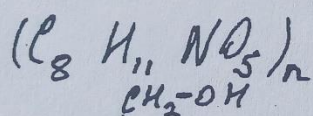 (C₈ H₁₁ NO₅)ₙ
CH₂-OH